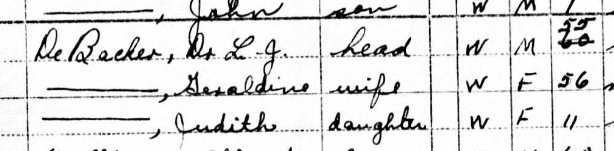 ———, John son W M
De Backer, Dr L. J. head W M 55 60
———, Geraldine wife W F 56
———, Judith daughter W F 11